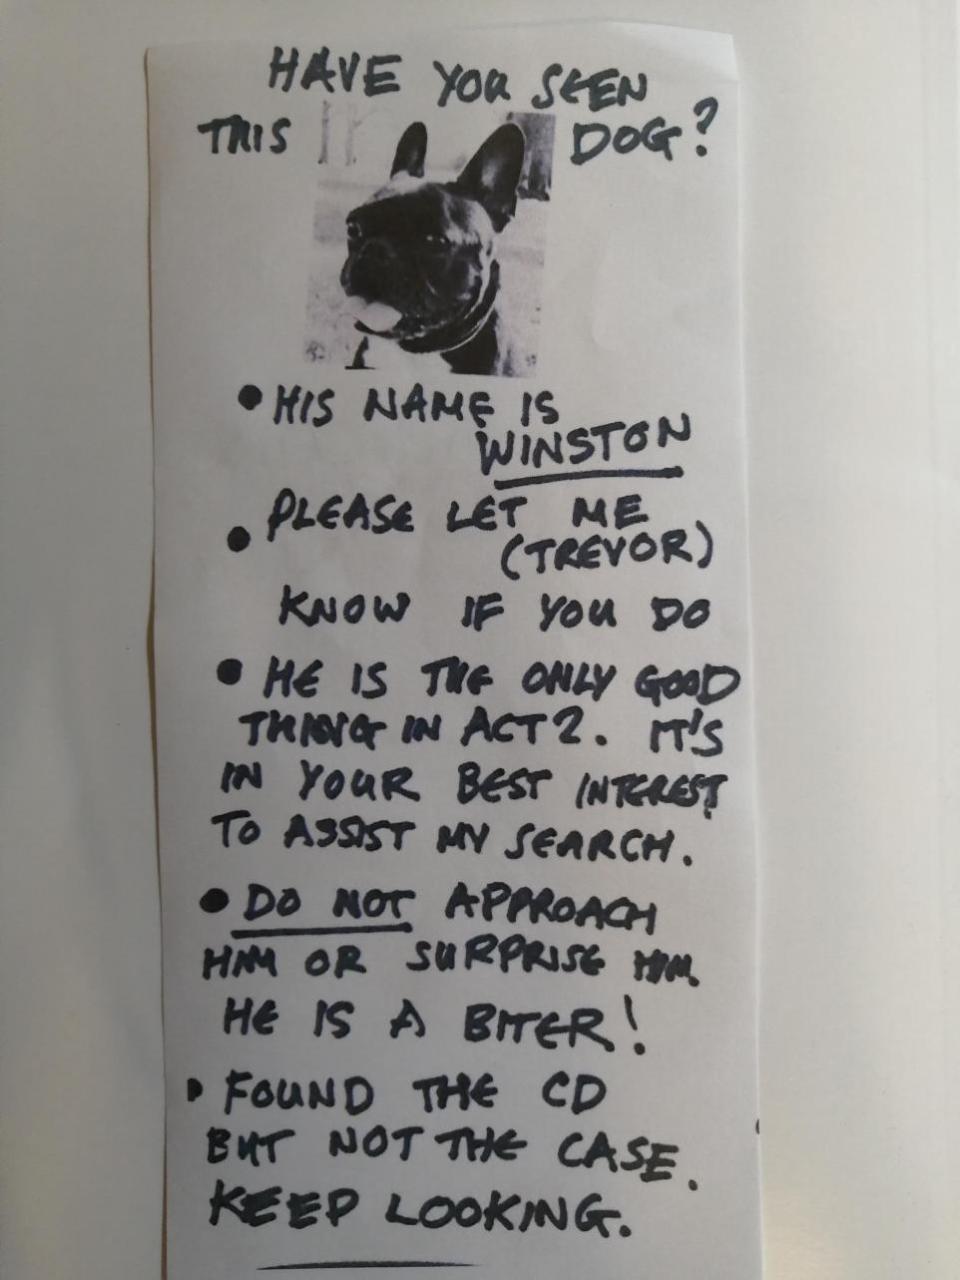 HAVE YOU SEEN
THIS DOG?
• HIS NAME IS
WINSTON
• PLEASE LET ME
(TREVOR)
KNOW IF YOU DO
• HE IS THE ONLY GOOD
THING IN ACT 2. IT'S
IN YOUR BEST INTEREST
TO ASSIST MY SEARCH.
• DO NOT APPROACH
HIM OR SURPRISE HIM.
HE IS A BITER!
• FOUND THE CD
BUT NOT THE CASE.
KEEP LOOKING.